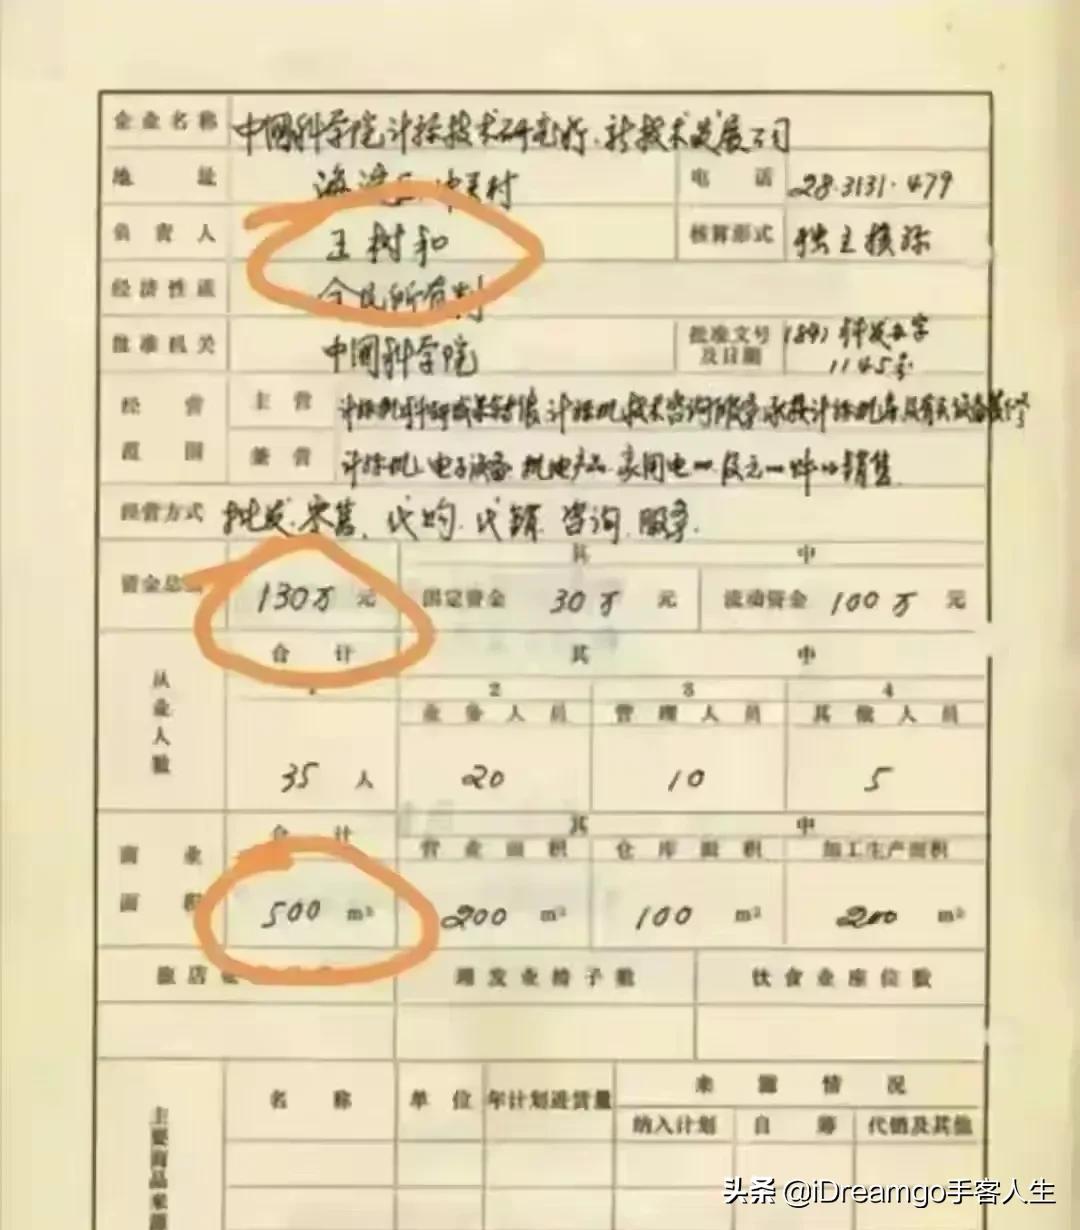 企业名称 中国科学院计算技术研究所新技术发展公司
地址 海淀区中关村 电话 28.3131.479
负责人 王树和 核算形式 独立核算
经济性质 全民所有制
批准机关 中国科学院 批准文号及日期 科发
1145号
经营范围 主营 计算机 计算机技术咨询服务 承接计算机
兼营 计算机 电子设备 机电产品 家用电 销售
经营方式 批发.零售、代购.代销.咨询.服务.
其中
资金总 130万元 固定资金 30万元 流动资金 100万元
从业人数 合计 其中
2 3 4
业务人员 管理人员 其他人员
35人 20 10 5
商业面积 合计 其中
营业面积 仓库面积 加工生产面积
500 m² 200 m² 100 m² 200 m²
旅店 理发业椅子数 饮食业座位数
主要商品来源 名称 单位 年计划进货量 来源情况
纳入计划 自筹 代销及其他
头条 @iDreamgo手客人生